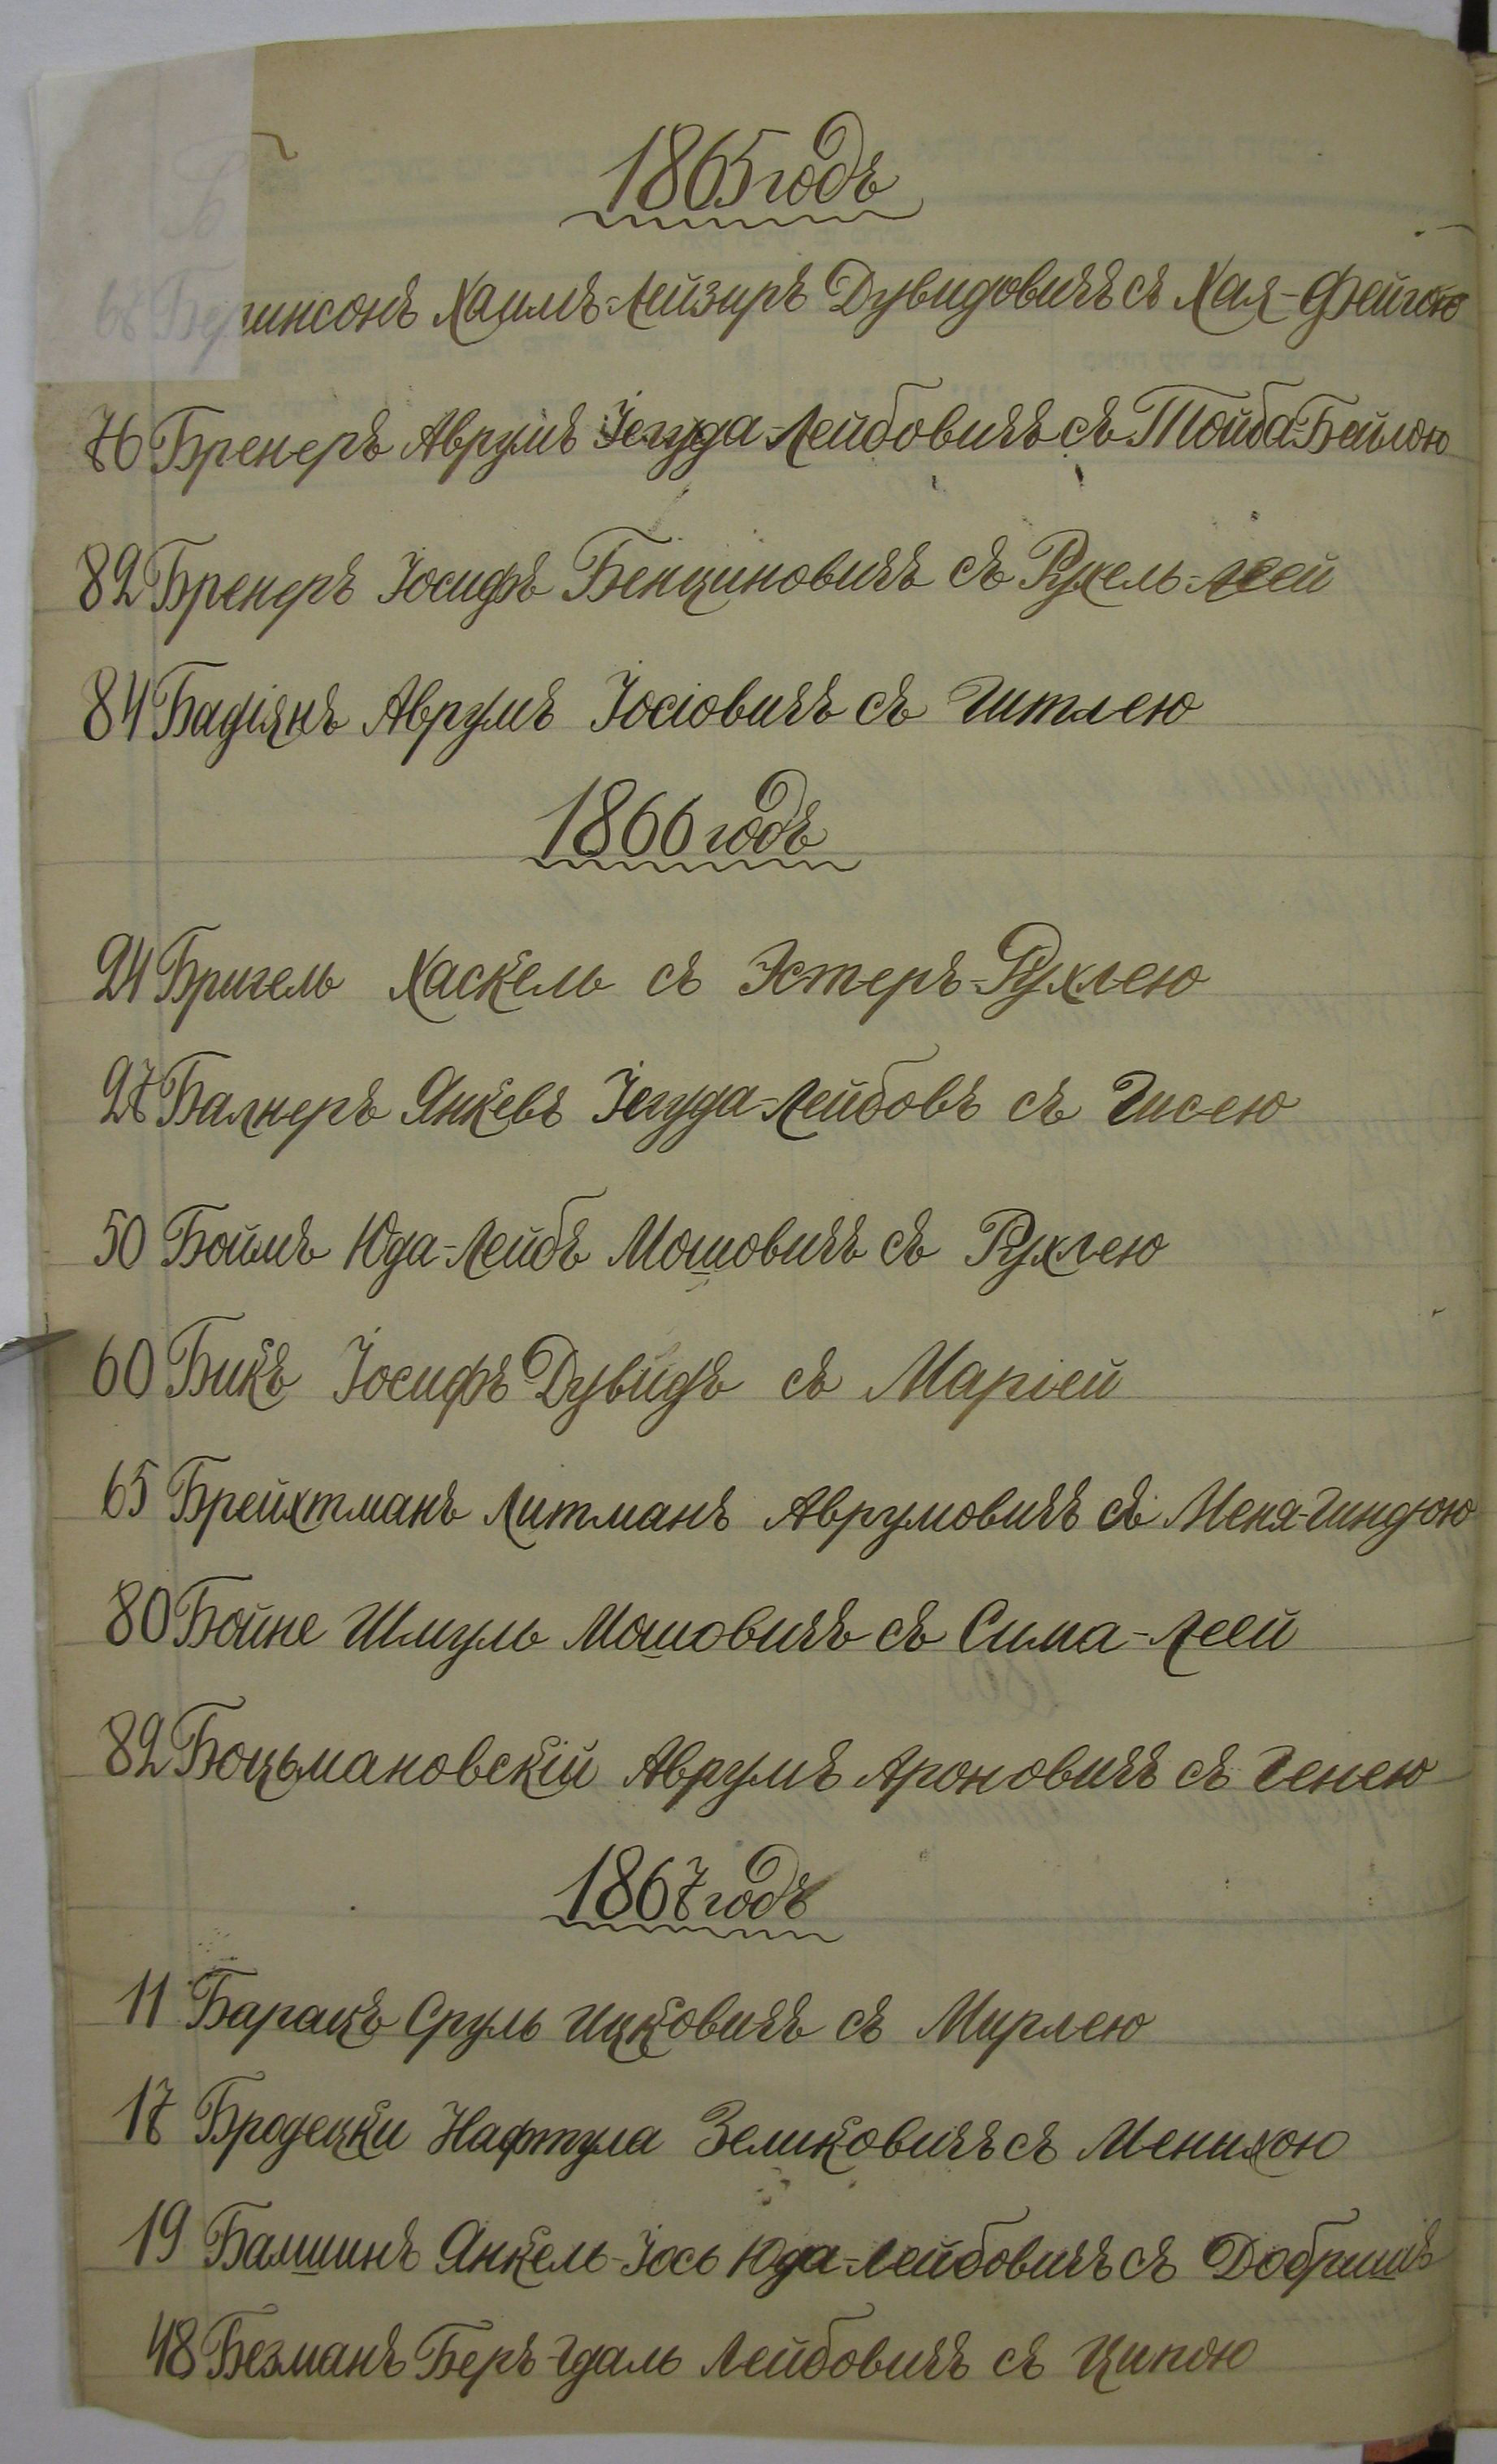 1865 годъ
Хаимъ-Лейзиръ Дувидовичъ съ Хая-Фейгою
76 Бренеръ Аврумъ Іегуда-Лейбовичъ съ Тойба-Бейлою
82 Бренеръ Іосифъ Бенциновичъ съ Рухель-Леей
84 Бадіянъ Аврумъ Іосіовичъ съ Гитлею
1866 годъ
24 Бригель Хаскель съ Эстеръ-Рухлею
27 Балнеръ Янкевъ Іегуда-Лейбовъ съ Гисею
50 Боймъ Юда-Лейбъ Мошовичъ съ Рухлею
60 Бикъ Іосифъ-Дувидъ съ Маріей
65 Брейхтманъ Литманъ Аврумовичъ съ Меня-Гиндою
80 Бойне Шмуль Мошовичъ съ Сима-Леей
82 Боцьмановскій Аврумъ Ароновичъ съ Генею
1867 годъ
11 Барацъ Сруль Ицковичъ съ Мирлею
17 Бродецки Нафтула Зеликовичъ съ Менихою
19 Бамшинъ Янкель-Іось Юда-Лейбовичъ съ Добришъ
48 Безманъ Беръ-Гдаль Лейбовичъ съ Ципою